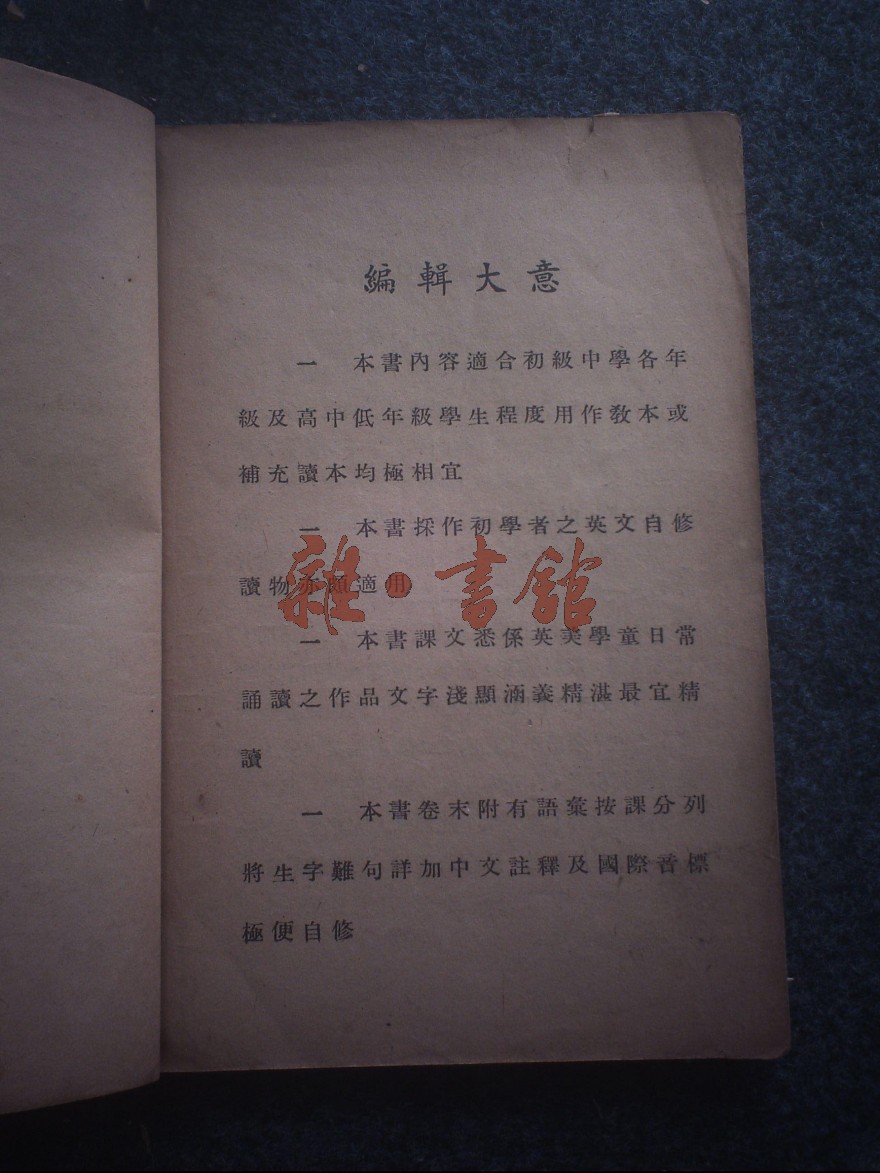 編輯大意
一 本書內容適合初級中學各年
級及高中低年級學生程度用作教本或
補充讀本均極相宜
一 本書採作初學者之英文自修
讀物亦頗適用
雜·書館
一 本書課文悉係英美學童日常
誦讀之作品文字淺顯涵義精湛最宜精
讀
一 本書卷末附有語彙按課分列
將生字難句詳加中文註釋及國際音標
極便自修